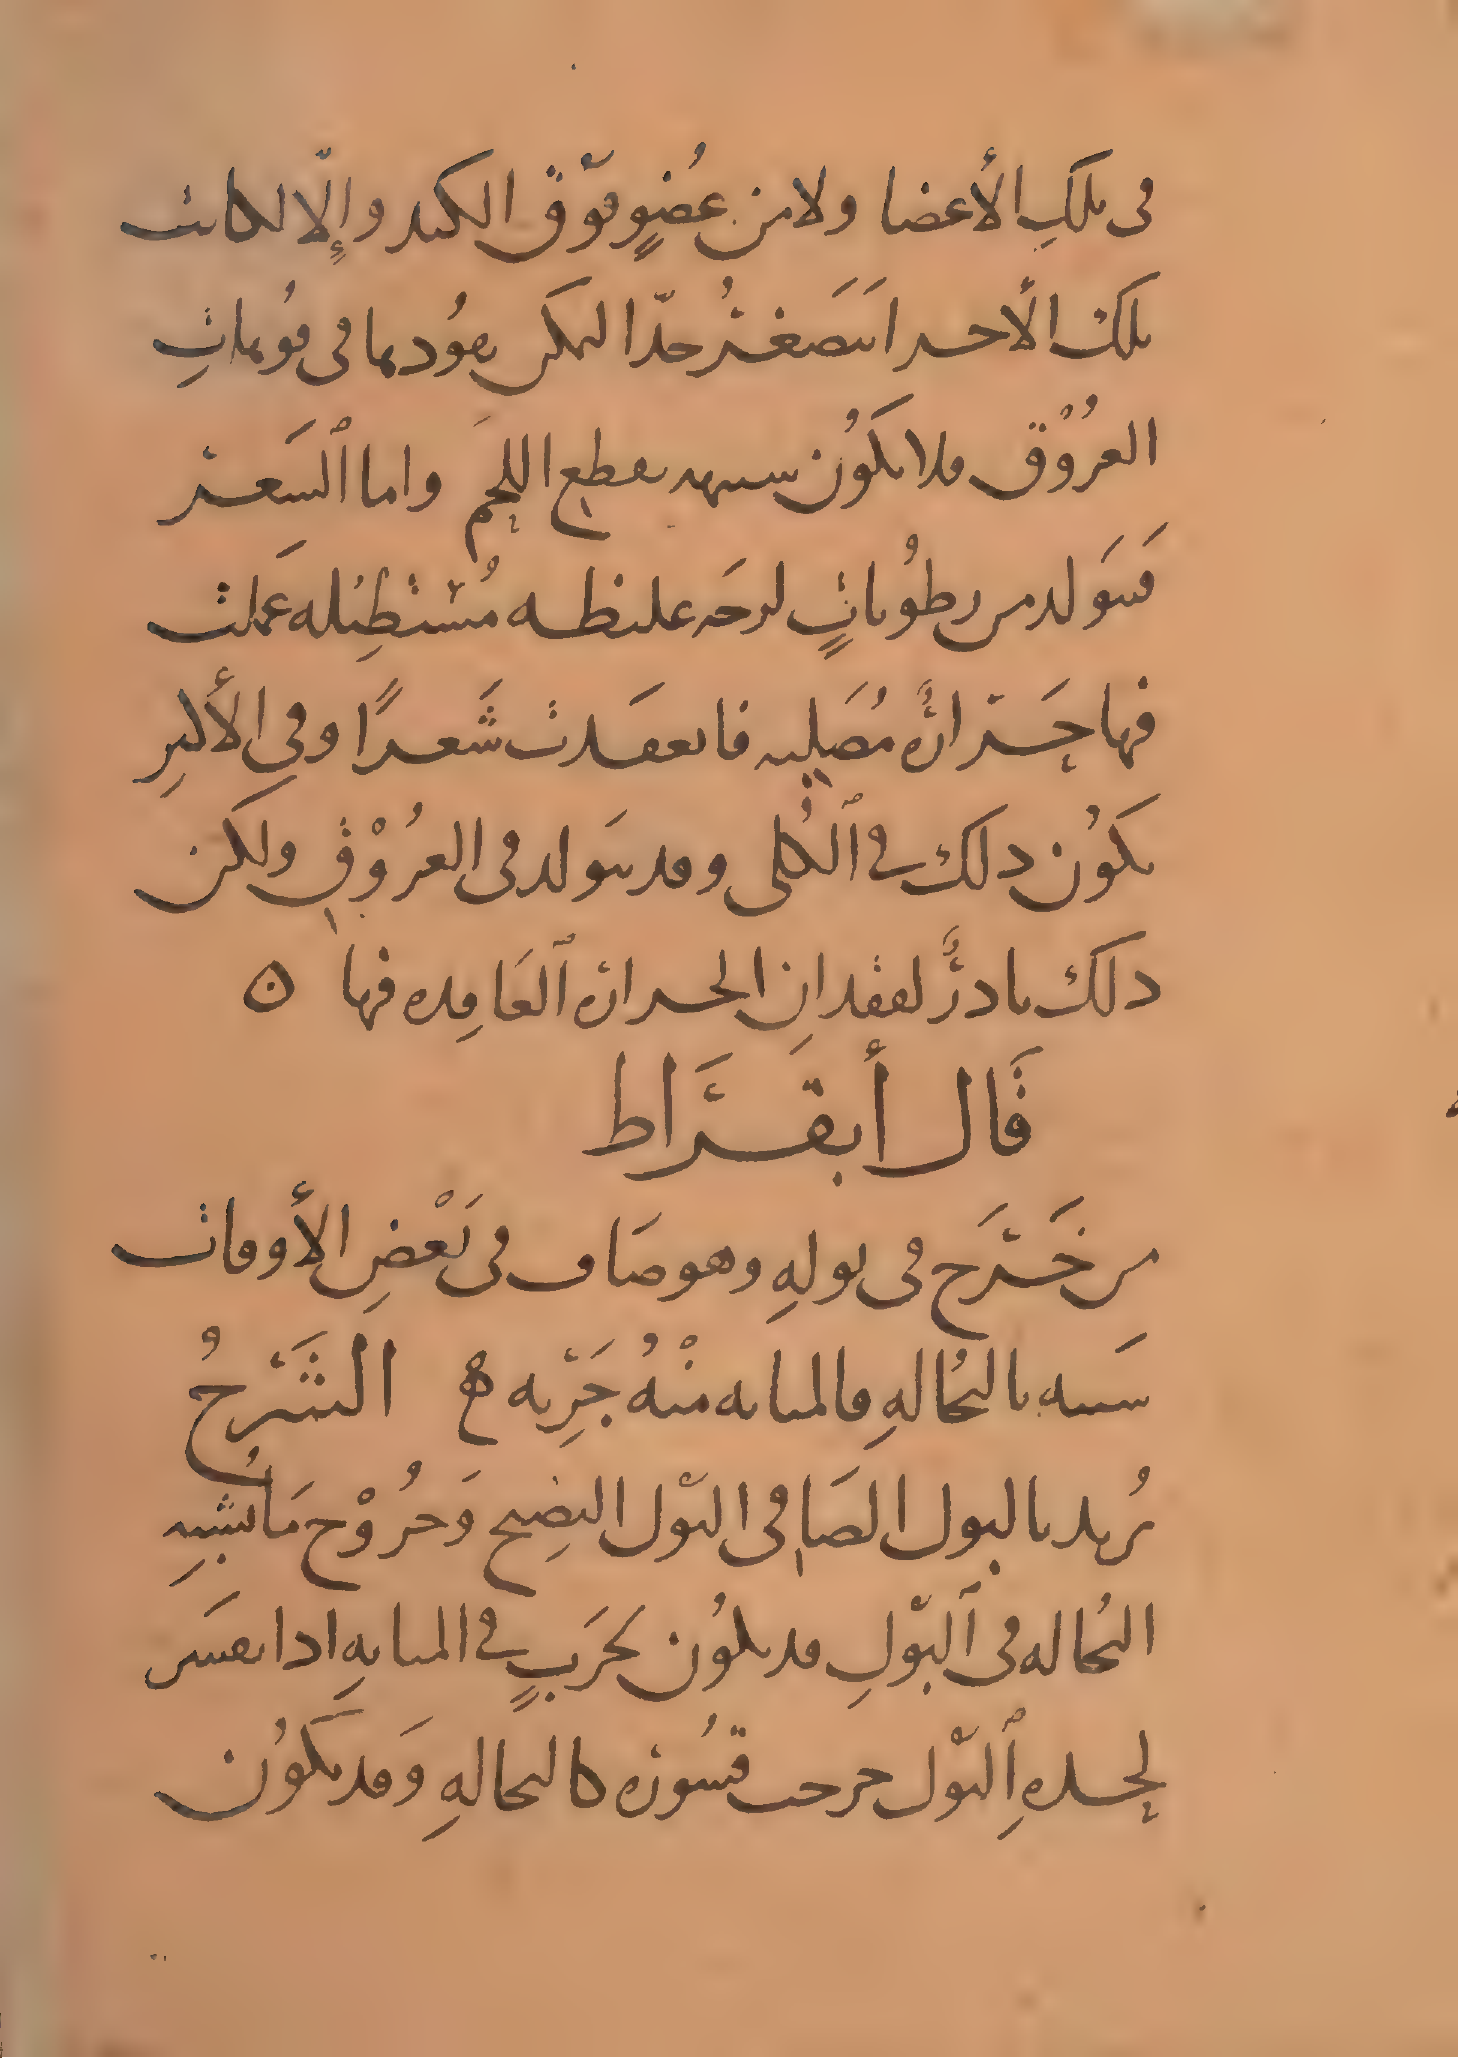 فى تلك الأعضا ولا من عُضوٍ فوق الكبد وإلّا لكانت
تلك الأجزا تصغر جدّا ليمكن نفوذها فى فوهات
العُرُوْق فلا يكُون شبيهه بقطع اللحم واما ٱلشَعر
فيتَولد من رطُوباتٍ لزجَه غليظه مُستطِيله عملت
فيها حَرارةٌ مُصَلِبه فانعقدت شَعرًا وفى الأكثرِ
يكوُن ذلك فى ٱلكُلى وقد يتولد فى العرُوْقِ ولكن
ذلك نادرٌ لفقدانِ الحرارة ٱلعَاقِده فيها ه
قَال أبقَراط
من خَرَج فى بولهِ وهو صَاف فى بَعْضِ الأوقات
شبيه بالنُخالهِ فالمثانه منْهُ جَرِبه ه الشَرْحُ
يُريد بالبول الصَافى البَول النضِيج وَخرُوْج مَا يُشبِه
النُخاله فى ٱلبَوْلِ قد يكُون لجرَبٍ فى المثانهِ اذا تقشَر
لحدهِ ٱلبَوْل خرجت قشُوره كالنخالهِ وَقد يَكوُن